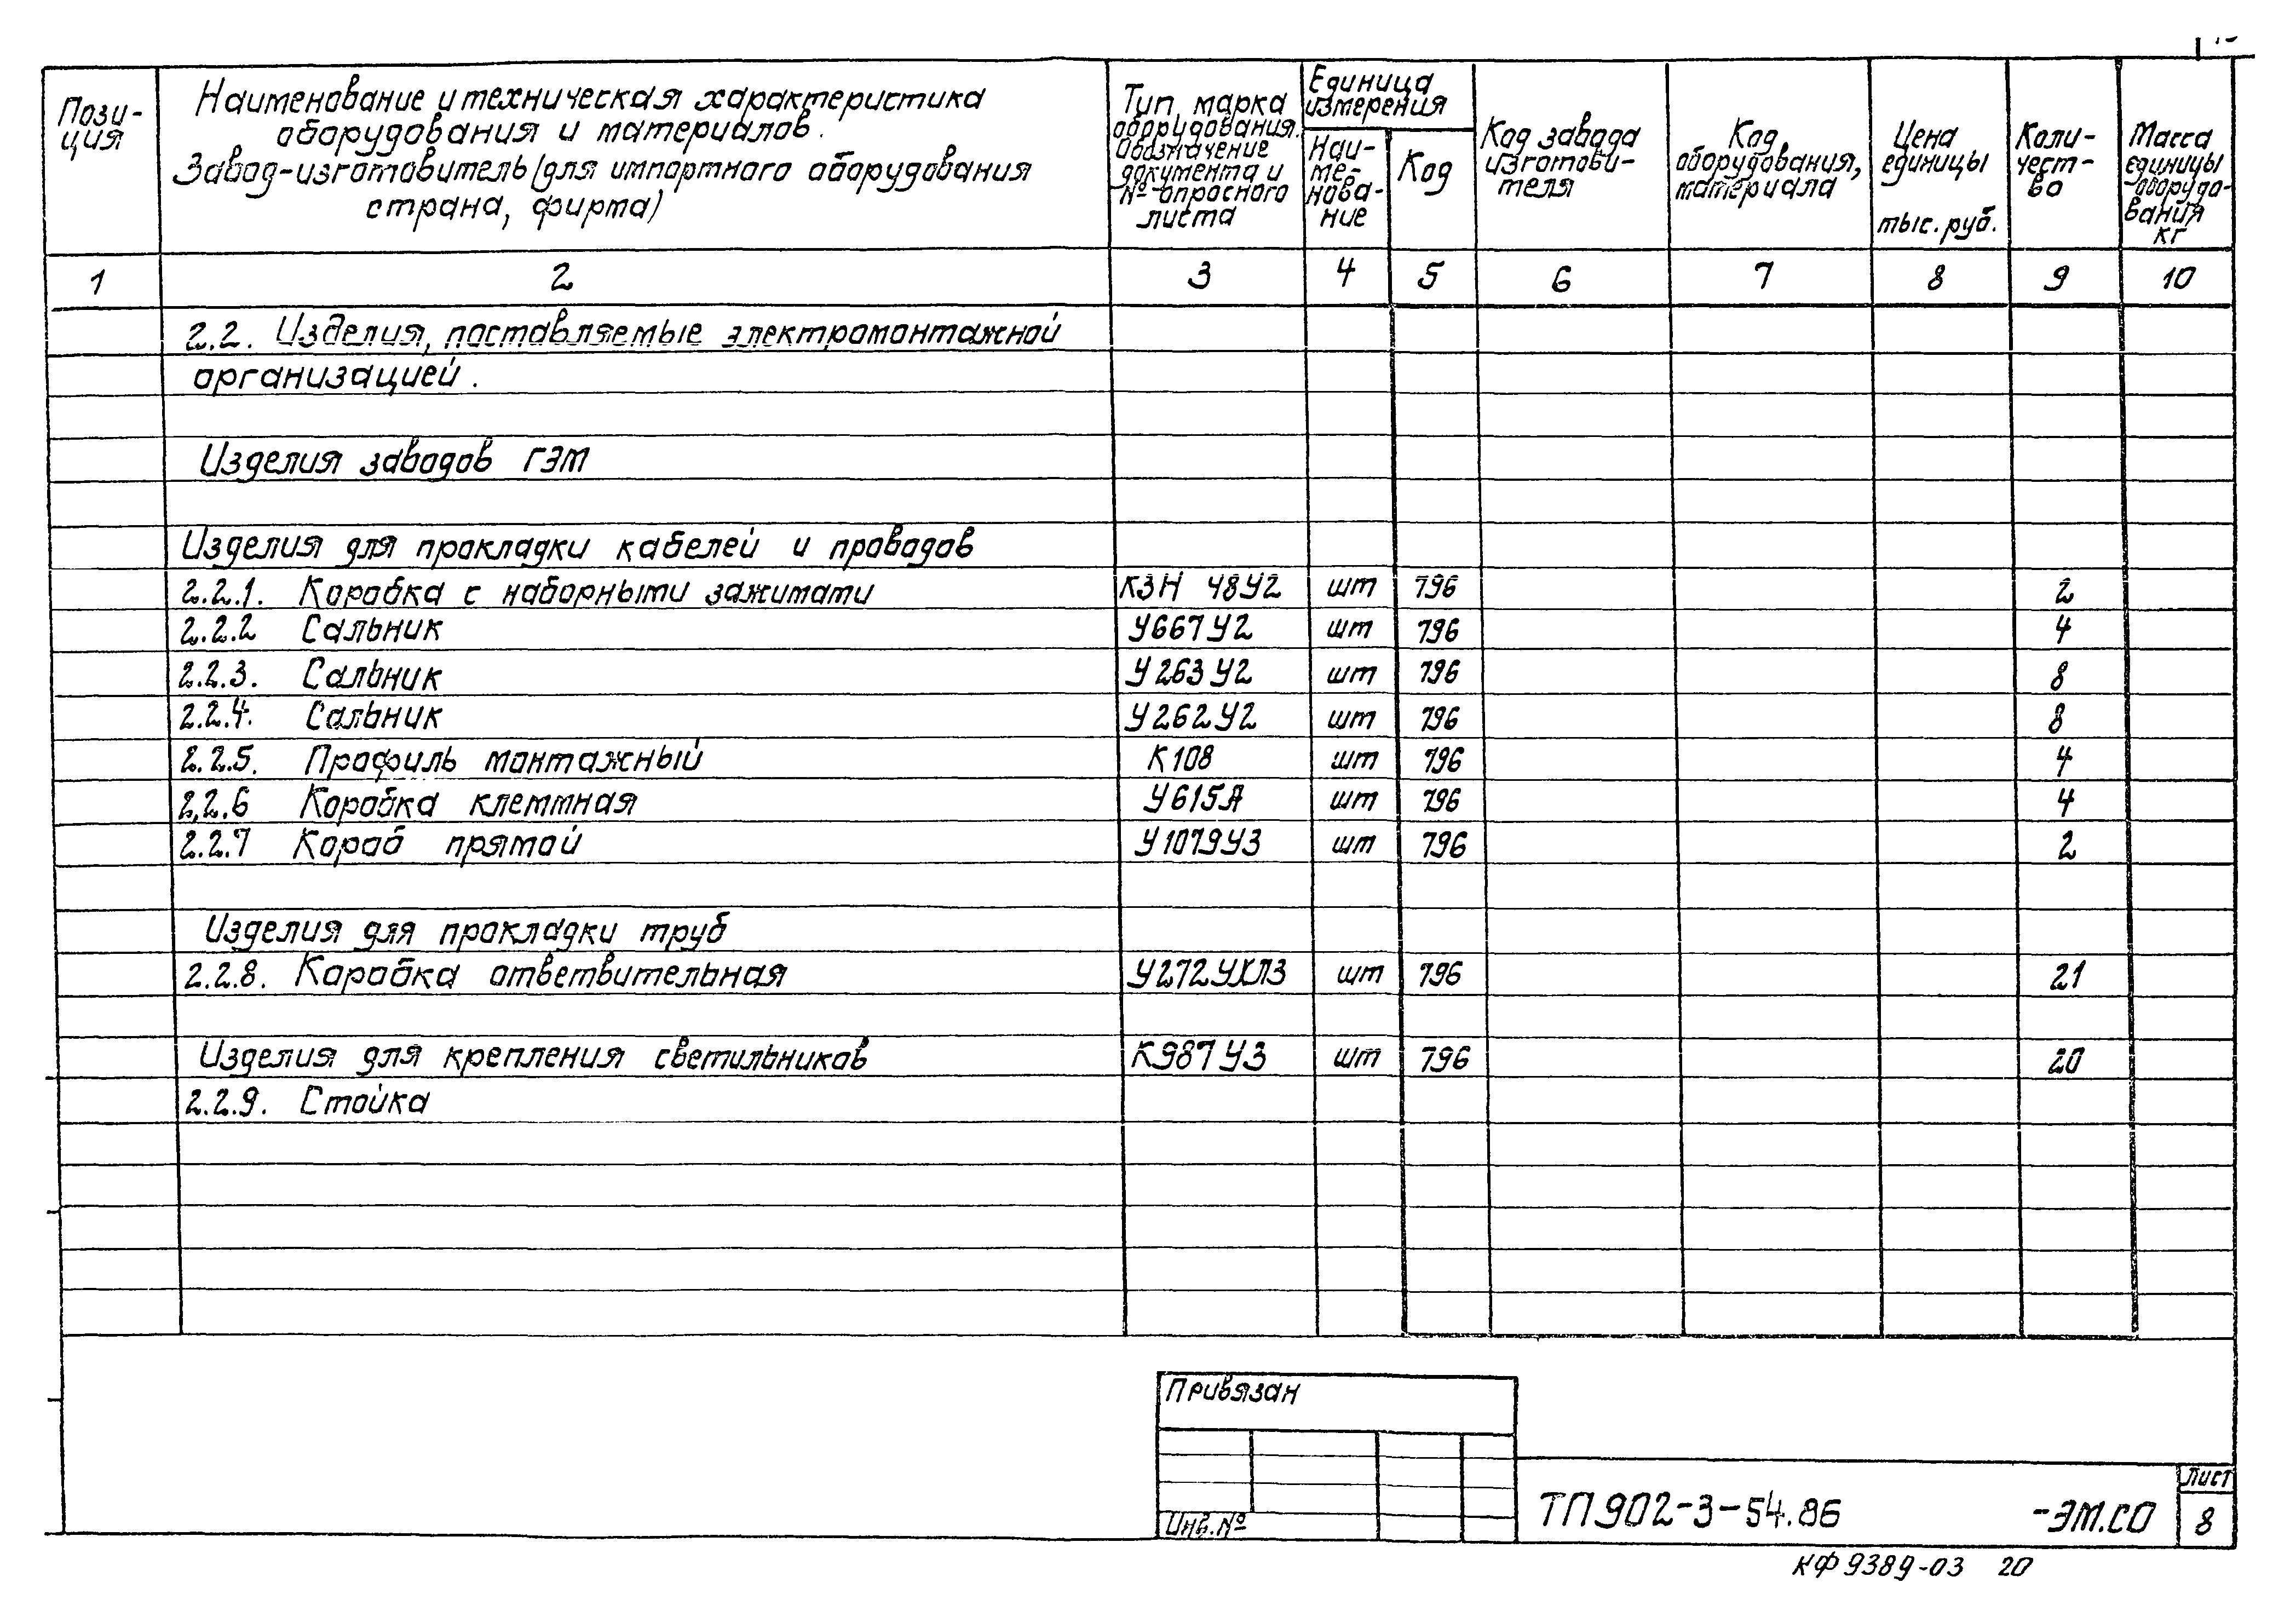 Пози-
ция
Наименование и техническая характеристика
оборудования и материалов.
Завод-изготовитель (для импортного оборудования
страна, фирма)
Тип, марка
оборудования.
Обозначение
документа и
№ опросного
листа
Единица
измерения
Наи-
ме-
нова-
ние
Код
Код завода
изготови-
теля
Код
оборудования,
материала
Цена
единицы
тыс. руб.
Коли-
чест-
во
Масса
единицы
оборудо-
вания
кг
1 2 3 4 5 6 7 8 9 10
2.2. Изделия, поставляемые электромонтажной
организацией.
Изделия заводов ГЭМ
Изделия для прокладки кабелей и проводов
2.2.1. Коробка с наборными зажимами КЗН 48У2 шт 796 2
2.2.2 Сальник У667У2 шт 796 4
2.2.3. Сальник У263У2 шт 796 8
2.2.4. Сальник У262У2 шт 796 8
2.2.5. Профиль монтажный К108 шт 796 4
2.2.6 Коробка клеммная У615А шт 796 4
2.2.7 Короб прямой У1079У3 шт 796 2
Изделия для прокладки труб
2.2.8. Коробка ответвительная У272УХЛ3 шт 796 21
Изделия для крепления светильников К987У3 шт 796 20
2.2.9. Стойка
Привязан
Инв.№
ТП 902-3-54.86 -ЭМ.СО
Лист
8
КФ 9389-03 20